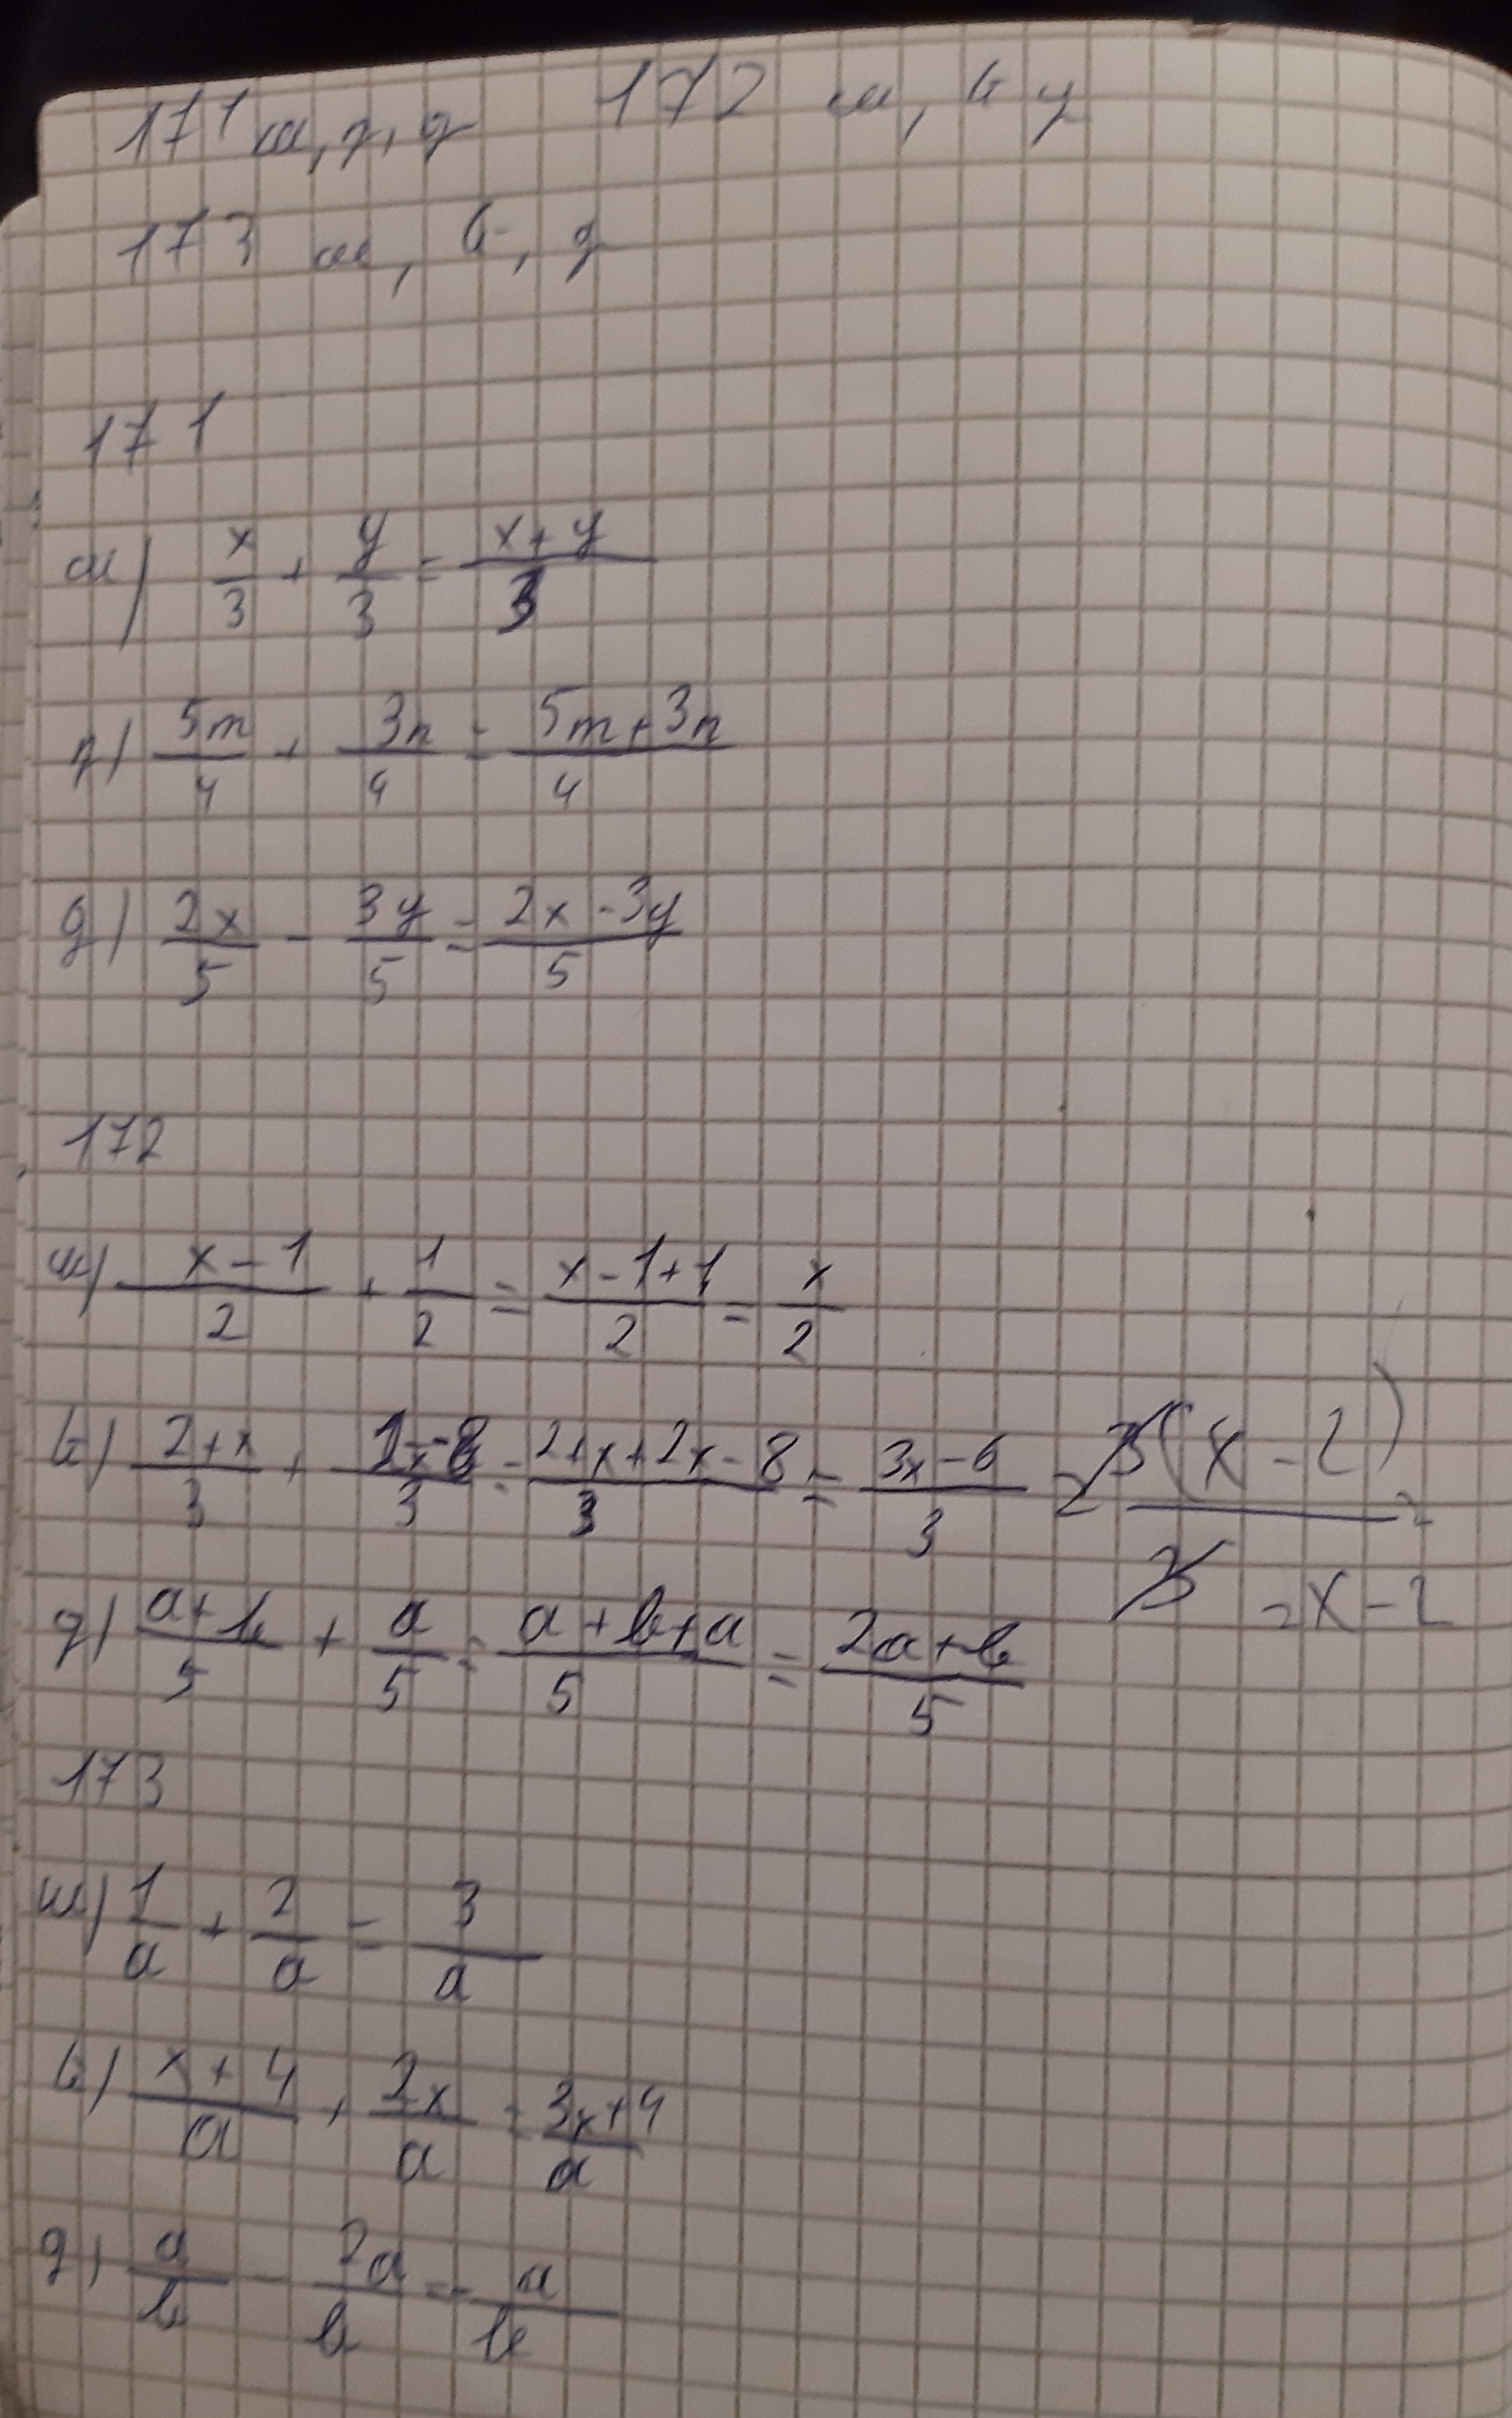 171 а, г, д 172 а, в, д
173 а, в, д
171
а) x/3 + y/3 = x+y/3
г) 5m/4 + 3n/4 = 5m+3n/4
д) 2x/5 - 3y/5 = 2x-3y/5
172
а) x-1/2 + 1/2 = x-1+1/2 = x/2
в) 2+x/3 + 2x-8/3 = 2+x+2x-8/3 = 3x-6/3 = 3(x-2)/3 =
= x-2
д) a+b/5 + a/5 = a+b+a/5 = 2a+b/5
173
а) 1/a + 2/a = 3/a
в) x+4/a + 2x/a = 3x+4/a
д) a/b - 2a/b = - a/b